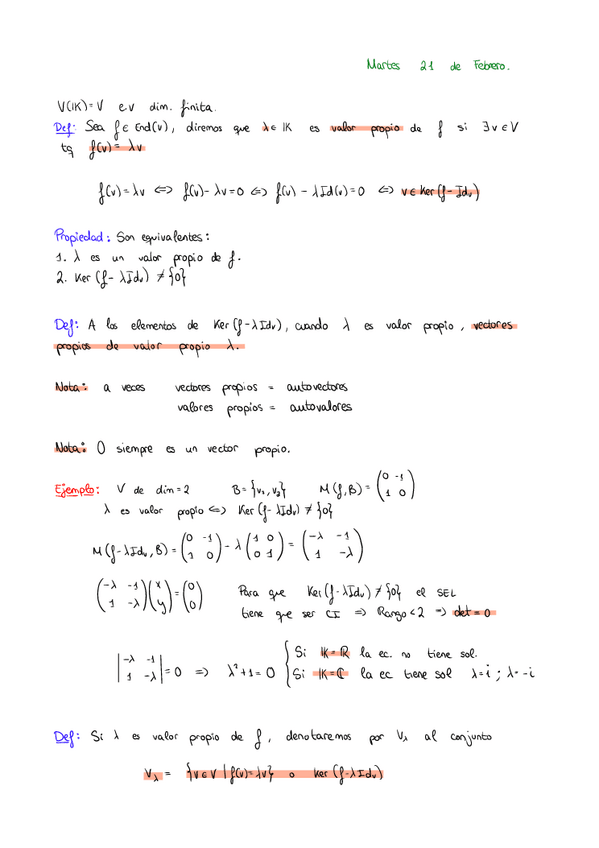 Martes 21 de Febrero.
V(IK) = V e.v dim. finita.
Def: Sea f ∈ End(v), diremos que λ ∈ IK es valor propio de f si ∃ v ∈ V
tq f(v) = λv
f(v) = λv ⇔ f(v) - λv = 0 ⇔ f(v) - λId(v) = 0 ⇔ v ∈ Ker (f - Idv)
Propiedad: Son equivalentes:
1. λ es un valor propio de f.
2. Ker (f - λIdv) ≠ {0}
Def: A los elementos de Ker (f - λIdv), cuando λ es valor propio, vectores
propios de valor propio λ.
Nota: a veces vectores propios = autovectores
valores propios = autovalores
Nota: 0 siempre es un vector propio.
Ejemplo: V de dim = 2 B = {v₁, v₂} M (f, B) = (0 -1
1 0)
λ es valor propio ⇔ Ker (f - λIdv) ≠ {0}
M (f - λIdv, B) = (0 -1
1 0) - λ (1 0
0 1) = (-λ -1
1 -λ)
(-λ -1
1 -λ) (x
y) = (0
0) Para que Ker (f - λIdv) ≠ {0} el SEL
tiene que ser CI ⇒ Rango < 2 ⇒ det = 0
|-λ -1
1 -λ| = 0 ⇒ λ² + 1 = 0 { Si IK = R la ec. no tiene sol.
Si IK = C la ec tiene sol λ = i ; λ = -i
Def: Si λ es valor propio de f, denotaremos por Vλ al conjunto
Vλ = {v ∈ V | f(v) = λv} o Ker (f - λIdv)